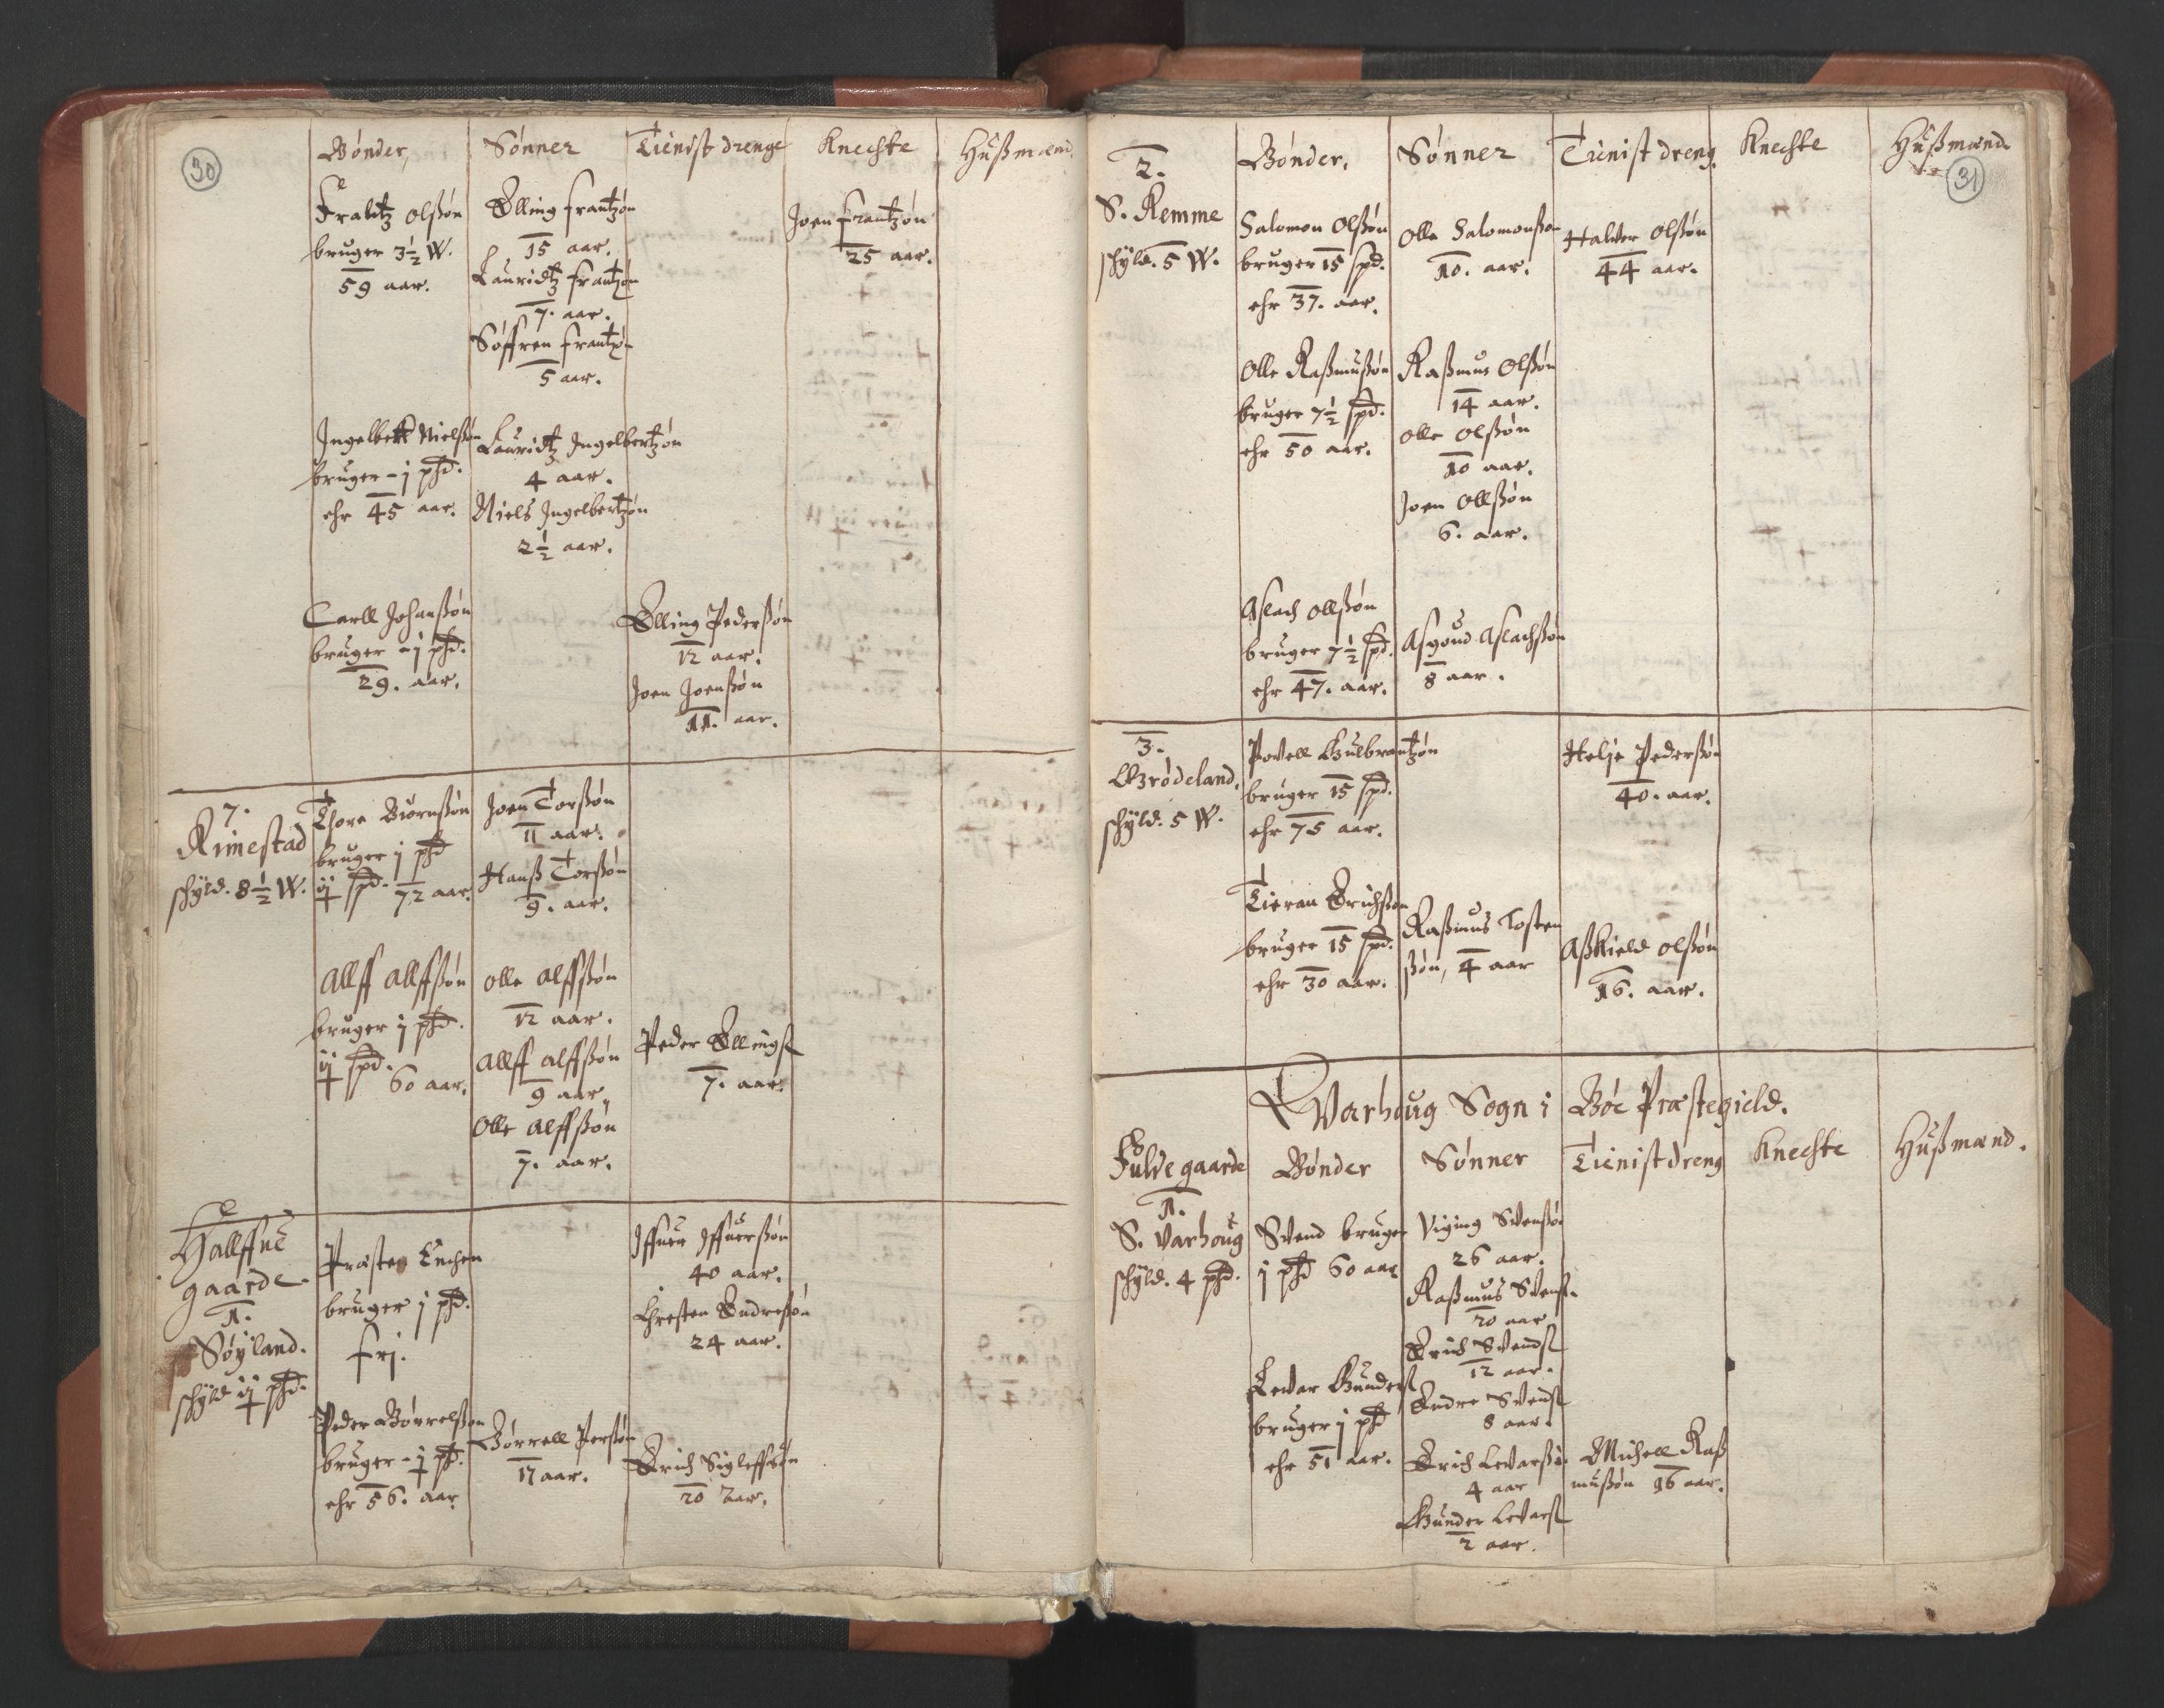 30
Bønder, Sønner Tienist drenge Knechte Hußmænd.
Frantz Olßøn
bruger 3½ W.
59 aar.
Elling Frantzøn
15 aar.
Lauridtz Frantzøn
7. aar.
Søffren Frantzøn
5 aar.
Joen Frantzøn
25 aar.
Ingelbett Nielßøn
bruger - j phd.
ehr 45 aar.
Lauridtz Ingelbertzøn
4 aar.
Niels Ingelbertzøn
2½ aar.
Carll Johanßøn
bruger - j phd.
29. aar.
Elling Pederßøn
12 aar.
Joen Joenßøn
11. aar.
7.
Rimestad
schÿld. 8½ W.
Thore Biørnßøn
bruger j phd
ij spd. 72 aar.
Joen Torßøn
11 aar.
Hanß Torßøn
9. aar.
Allff Allffßøn
bruger j phd.
ij spd. 60 aar.
Olle Alffßøn
12 aar.
Allff Alffßøn
9 aar,
Olle Alffßøn
7. aar.
Peder Ellings
7. aar.
Hallffue
gaarde.
1.
Søÿland.
schÿld ij phd.
Præsten
bruger j phd.
frj.
Iffuer Iffuerßøn
40 aar.
Chresten Endresøn
24 aar.
Peder Børrelßøn
bruger - j phd.
ehr 56. aar
Børrell Perßøn
17 aar.
Erich Sigleffßøn
20 aar.
31
2.
S. Remme
schÿld. 5 W.
Bønder, Sønner Tienist dreng Knechte Hußmænd
Salomon Olßøn
bruger 15 spd.
ehr 37. aar.
Olle Salomonßøn
10. aar.
Halvor Olßøn
44 aar.
Olle Raßmußøn
bruger 7½ spd.
ehr 50 aar.
Raßmus Olßøn
14 aar.
Olle Olßøn
10 aar.
Joen Ollßøn
6. aar.
Aslach Ollßøn
bruger 7½ spd.
ehr 47. aar.
Asgoud Aslachßøn
8 aar.
3.
Grødeland.
schÿld. 5 W.
Povell Gulbrantzøn
bruger 15 spd.
ehr 75 aar.
Helje Pederßøn
40. aar.
Tieran Erichßøn
bruger 15 spd.
ehr 30 aar.
Raßmus Tosten
ßøn, 4 aar
Aßkield Olßøn
16. aar.
Warhoug Sogn i Bøe Præstegield.
Fulde gaarde Bønder Sønner Tienist dreng Knechte Hußmænd.
1.
S. Varhoug
schÿld. 4 phd.
Svend bruger
j phd 60 aar
Viging Svensøn
26 aar.
Raßmus Svens
20 aar
Erich Svends
12 aar.
Endre Svens
8 aar.
Levar Gunders
bruger j phd
ehr 51 aar.
Erich Levarßøn
4 aar
Gunder Levars
2 aar.
Michell Raß
mußøn 16 aar.